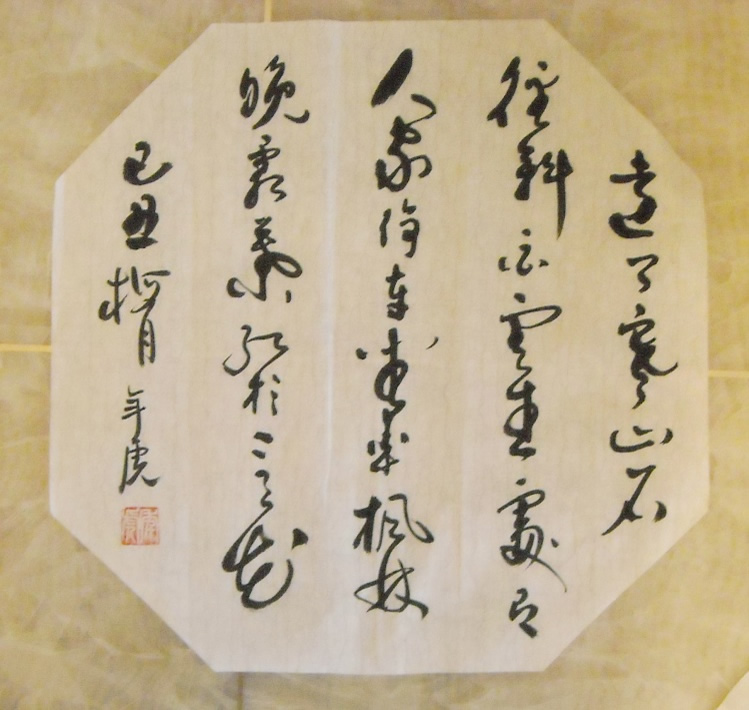 遠上寒山石
徑斜白雲生處有
人家停車坐愛楓林
晚霜葉紅於二月花
己丑月 年虎